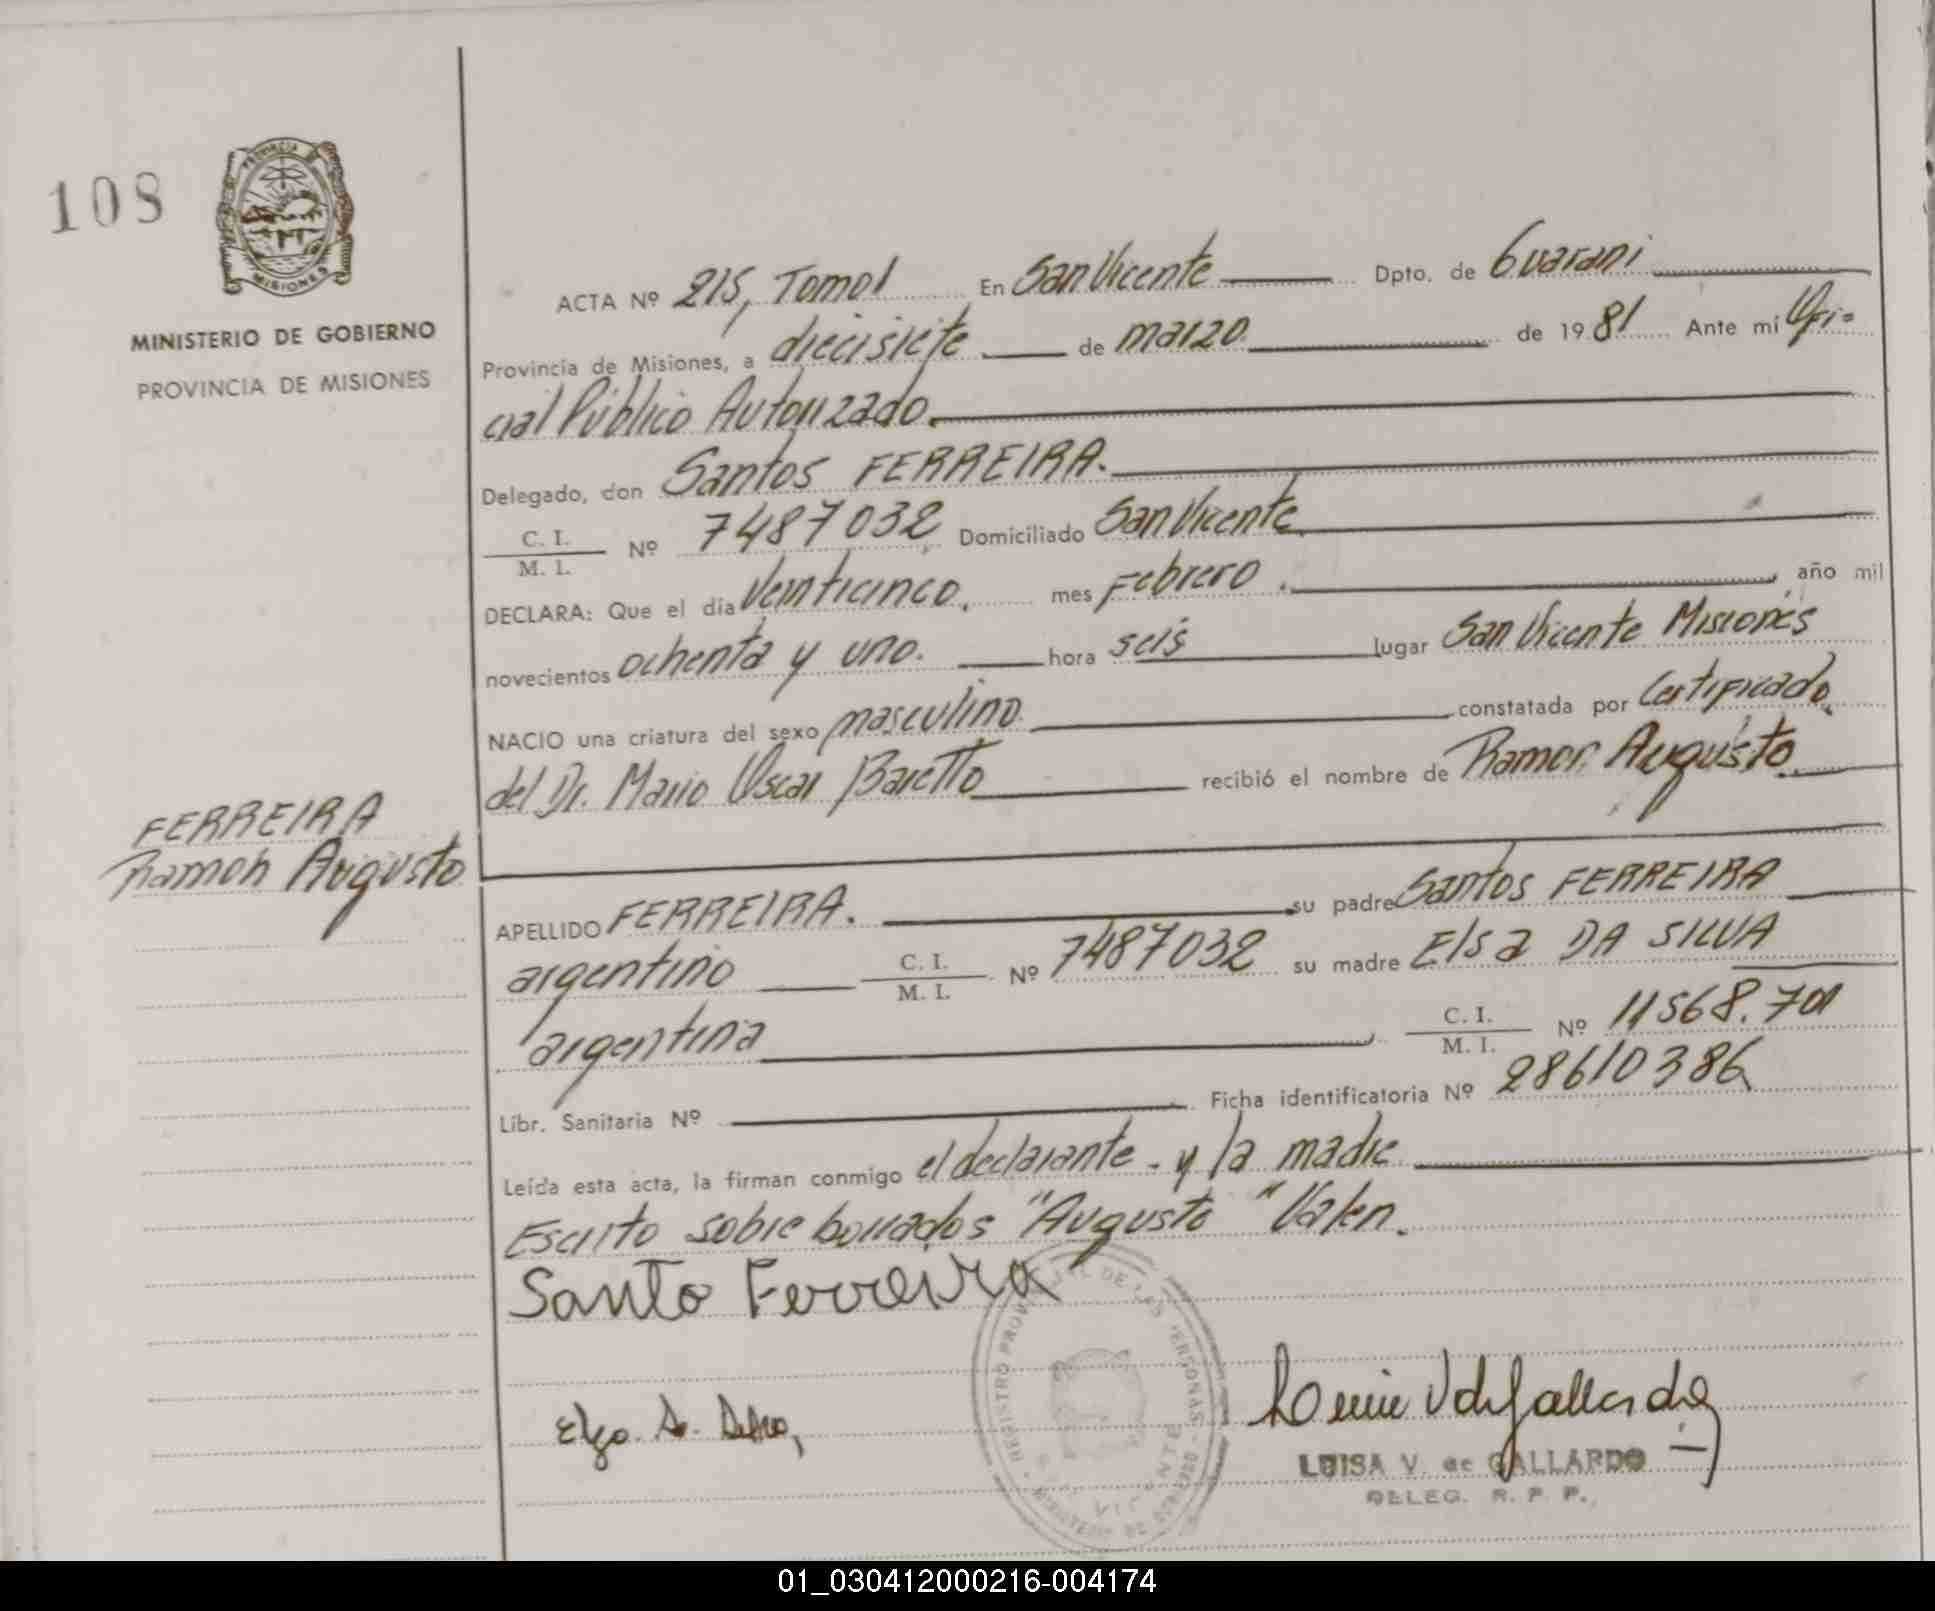 108
PROVINCIA DE
MISIONES
MINISTERIO DE GOBIERNO
PROVINCIA DE MISIONES
FERREIRA
Ramon Augusto
ACTA Nº 215, Tomo I En San Vicente Dpto. de Guarani
Provincia de Misiones, a diecisiete de marzo de 1981 Ante mí Ofi-
cial Público Autorizado.
Delegado, don Santos FERREIRA.
C. I. / M. I. Nº 7487032 Domiciliado San Vicente
DECLARA: Que el día Veinticinco, mes Febrero, año mil
novecientos ochenta y uno. hora seis lugar San Vicente Misiones
NACIO una criatura del sexo masculino constatada por Certificado
del Dr. Mario Oscar Baretto recibió el nombre de Ramon Augusto
APELLIDO FERREIRA. su padre Santos FERREIRA
argentino C. I. / M. I. Nº 7487032 su madre Elsa DA SILVA
argentina C. I. / M. I. Nº 11568.701
Libr. Sanitaria Nº Ficha identificatoria Nº 28610386
Leída esta acta, la firman conmigo el declarante - y la madre
Escrito sobre borrados "Augusto" Valen.
Santo Ferreira
REGISTRO PROVINCIAL DE LAS PERSONAS
VICENTE
LUISA V. de GALLARDO
DELEG. R. P. P.
01_030412000216-004174